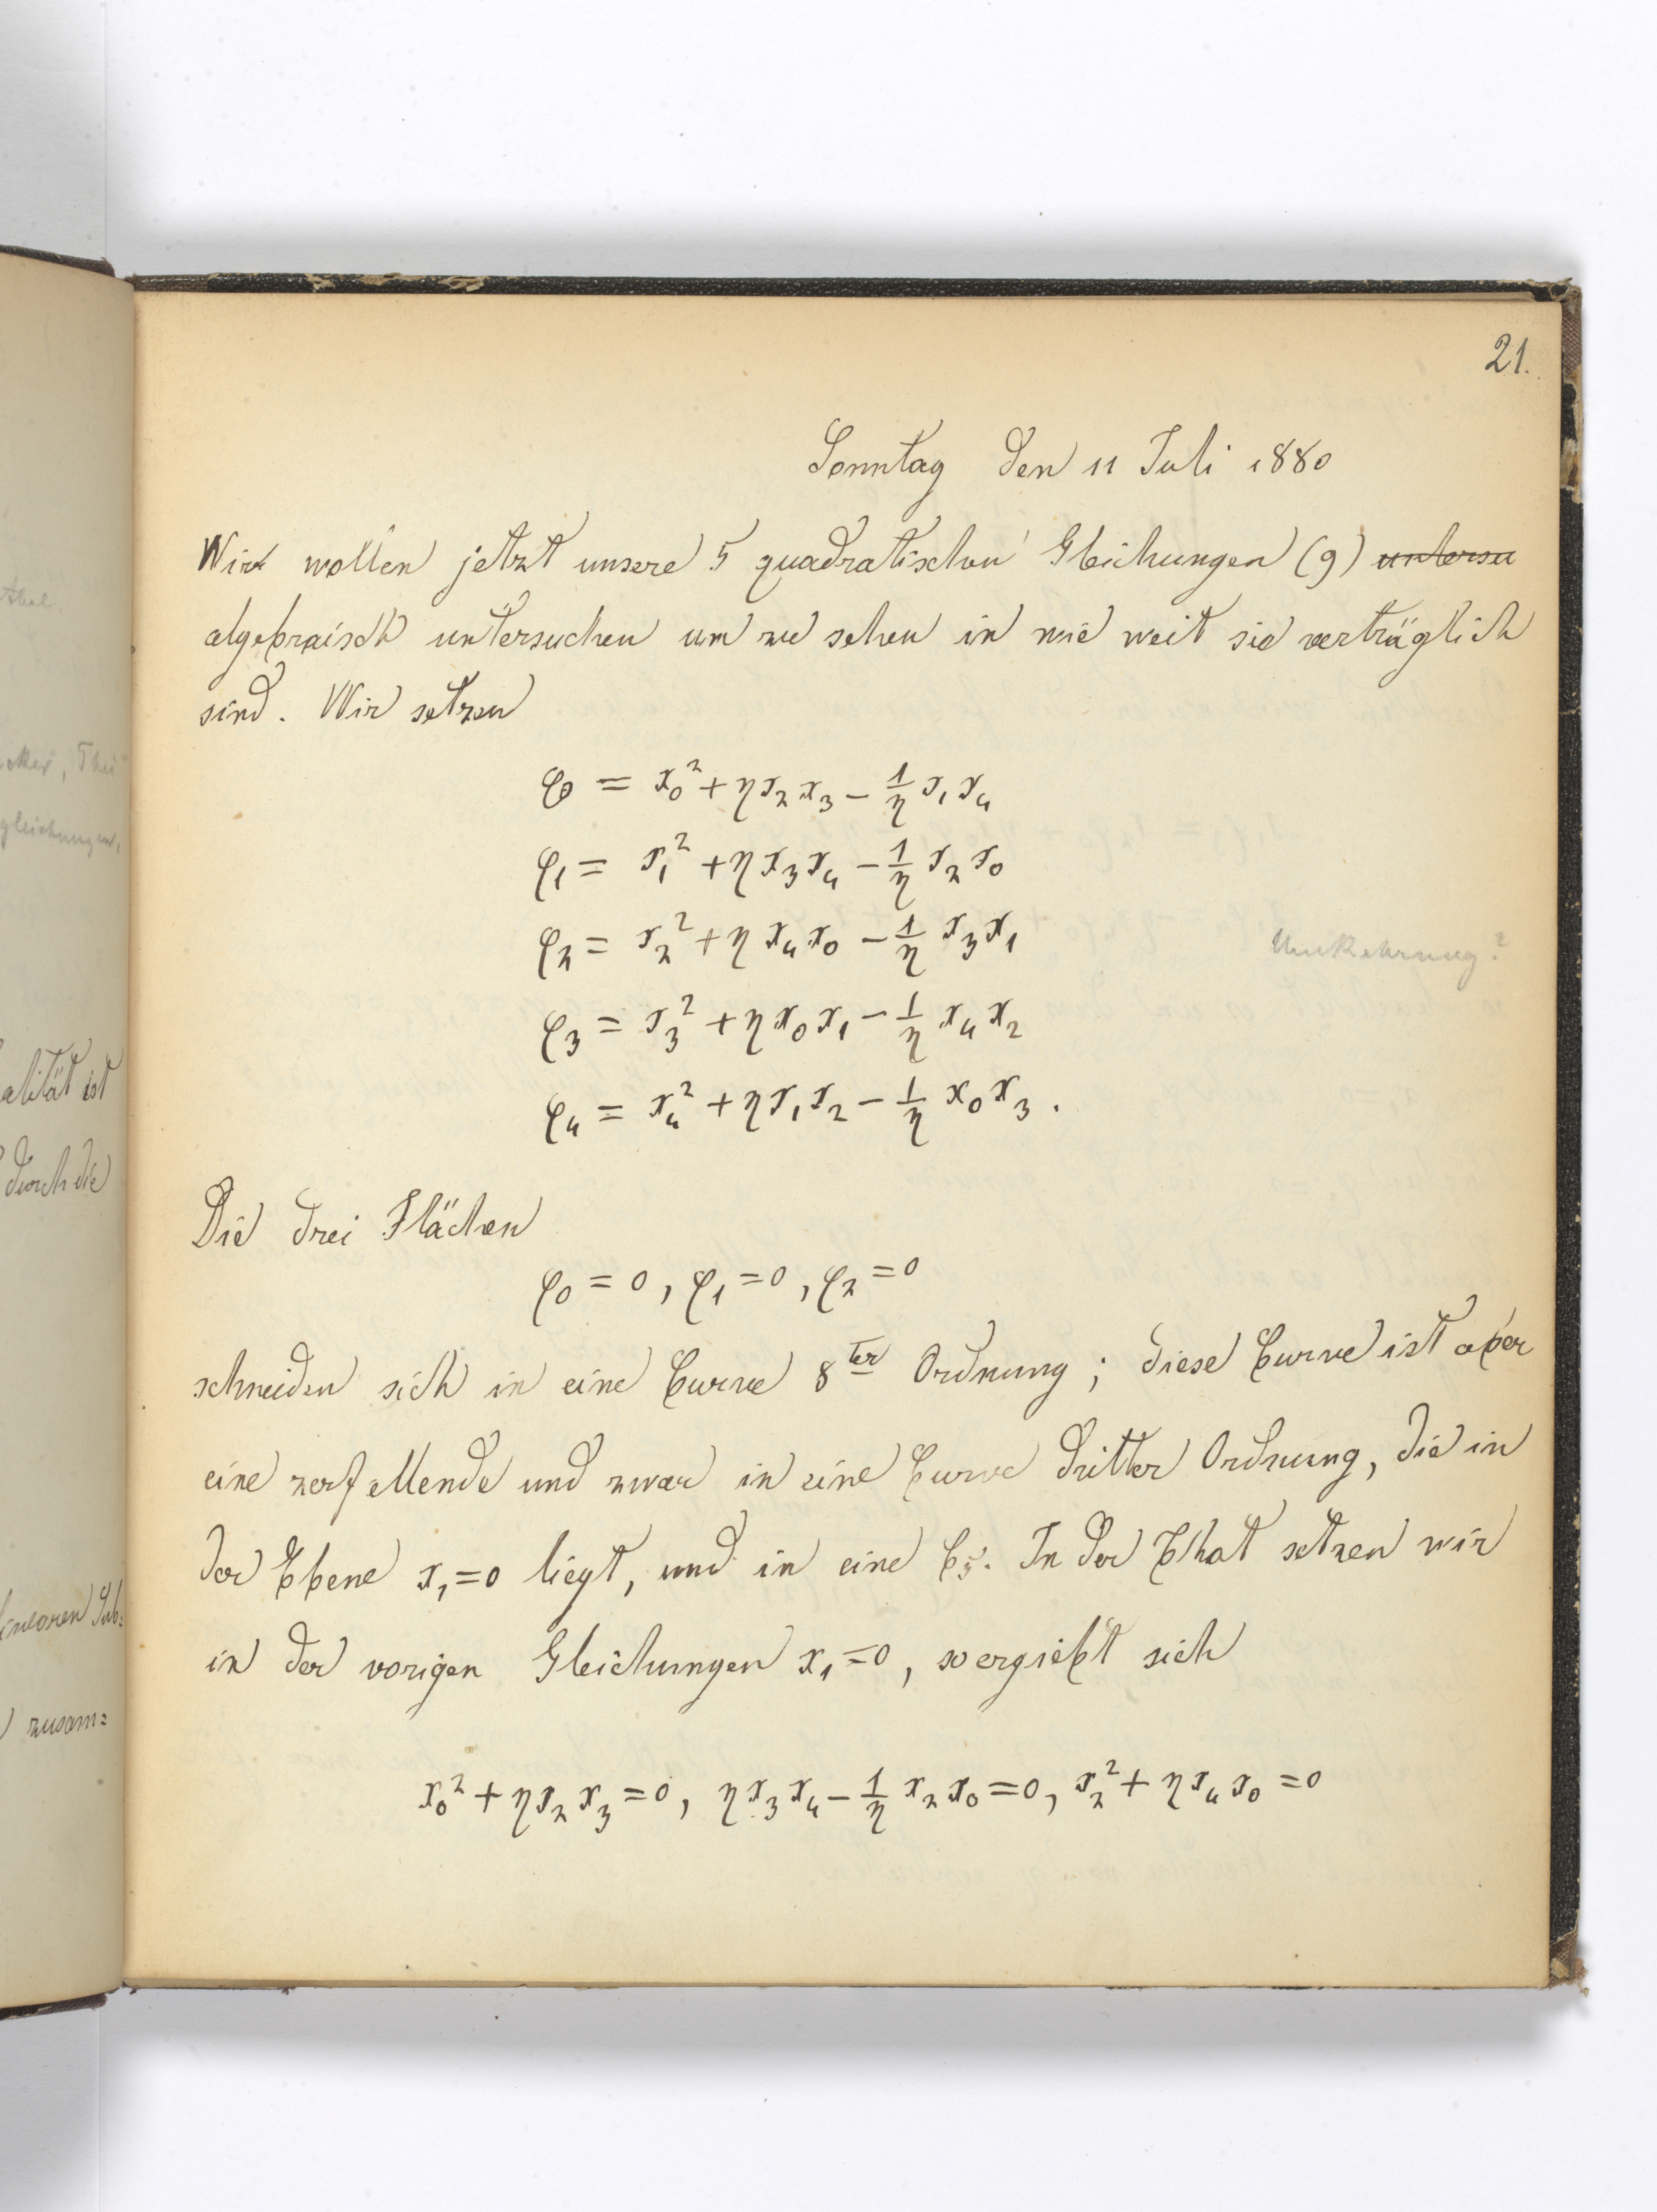 21.
Sonntag den 11 Juli 1880
Wir wollen jetzt unsere 5 quadratischen Gleichungen (9) untersu
algebraisch untersuchen um zu sehen in wie weit sie verträglich
sind. Wir setzen
φ₀ = x₀² + ηx₂x₃ − 1/η x₁x₄
φ₁ = x₁² + ηx₃x₄ − 1/η x₂x₀
φ₂ = x₂² + ηx₄x₀ − 1/η x₃x₁
Umkehrung?
φ₃ = x₃² + ηx₀x₁ − 1/η x₄x₂
φ₄ = x₄² + ηx₁x₂ − 1/η x₀x₃.
Die drei Flächen
φ₀ = 0, φ₁ = 0, φ₂ = 0
schneiden sich in eine Curve 8ter Ordnung; diese Curve ist aber
eine zerfallende und zwar in eine Curve dritter Ordnung, die in
der Ebene x₁=0 liegt, und in eine C₅. In der That setzen wir
in der vorigen Gleichungen x₁=0, so ergiebt sich
x₀² + ηx₂x₃ = 0, ηx₃x₄ − 1/η x₂x₀ = 0, x₂² + ηx₄x₀ = 0
alität ist
durch die
linearen Sub:
zusam:
gleichungen,